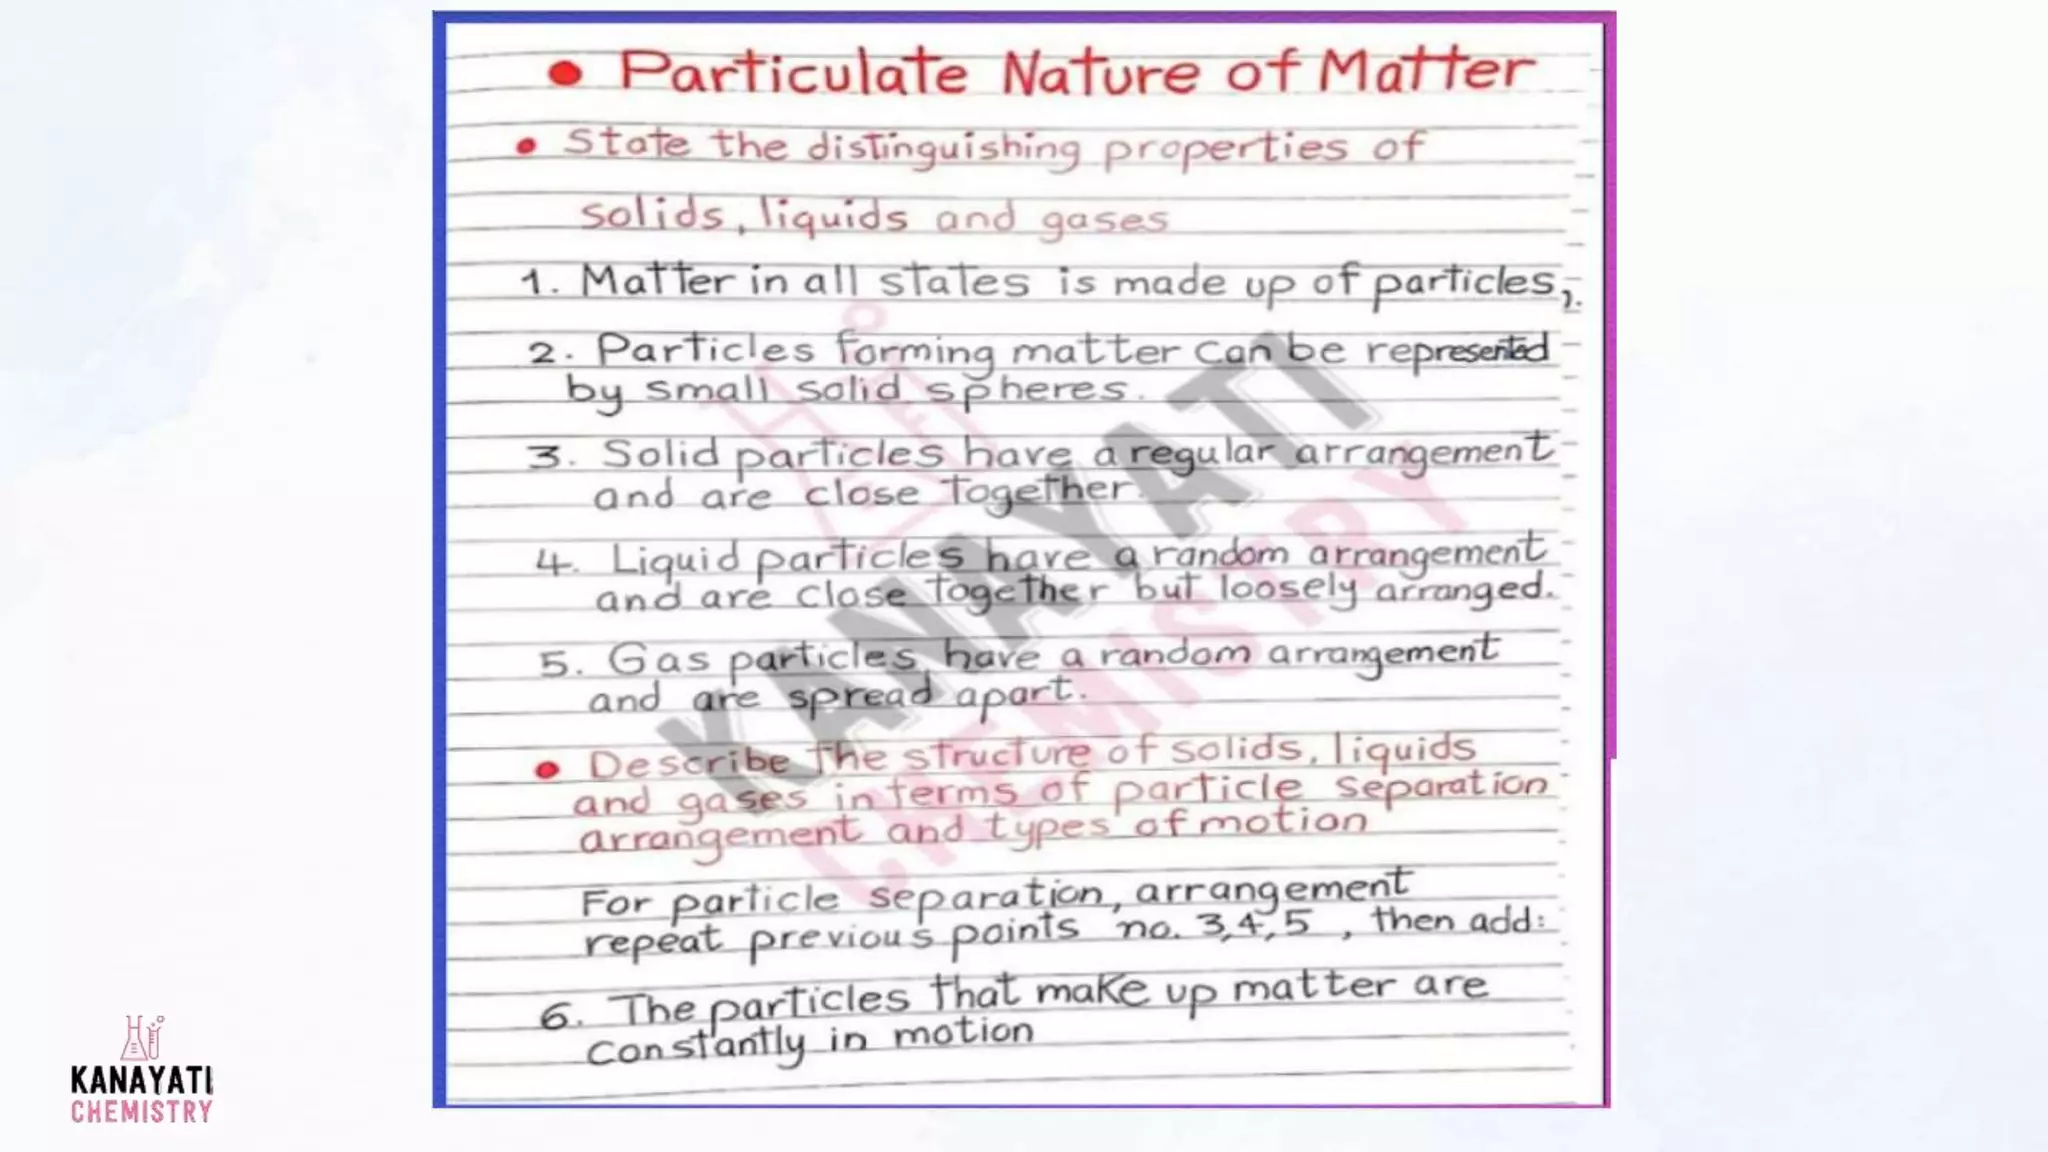 • Particulate Nature of Matter
• State the distinguishing properties of
solids, liquids and gases
1. Matter in all states is made up of particles,
2. Particles forming matter can be represented
by small solid spheres.
3. Solid particles have a regular arrangement
and are close together.
4. Liquid particles have a random arrangement
and are close together but loosely arranged.
5. Gas particles have a random arrangement
and are spread apart.
• Describe the structure of solids, liquids
and gases in terms of particle separation
arrangement and types of motion
For particle separation, arrangement
repeat previous points no. 3,4,5 , then add:
6. The particles that make up matter are
constantly in motion
KANAYATI
CHEMISTRY
KANAYATI
CHEMISTRY